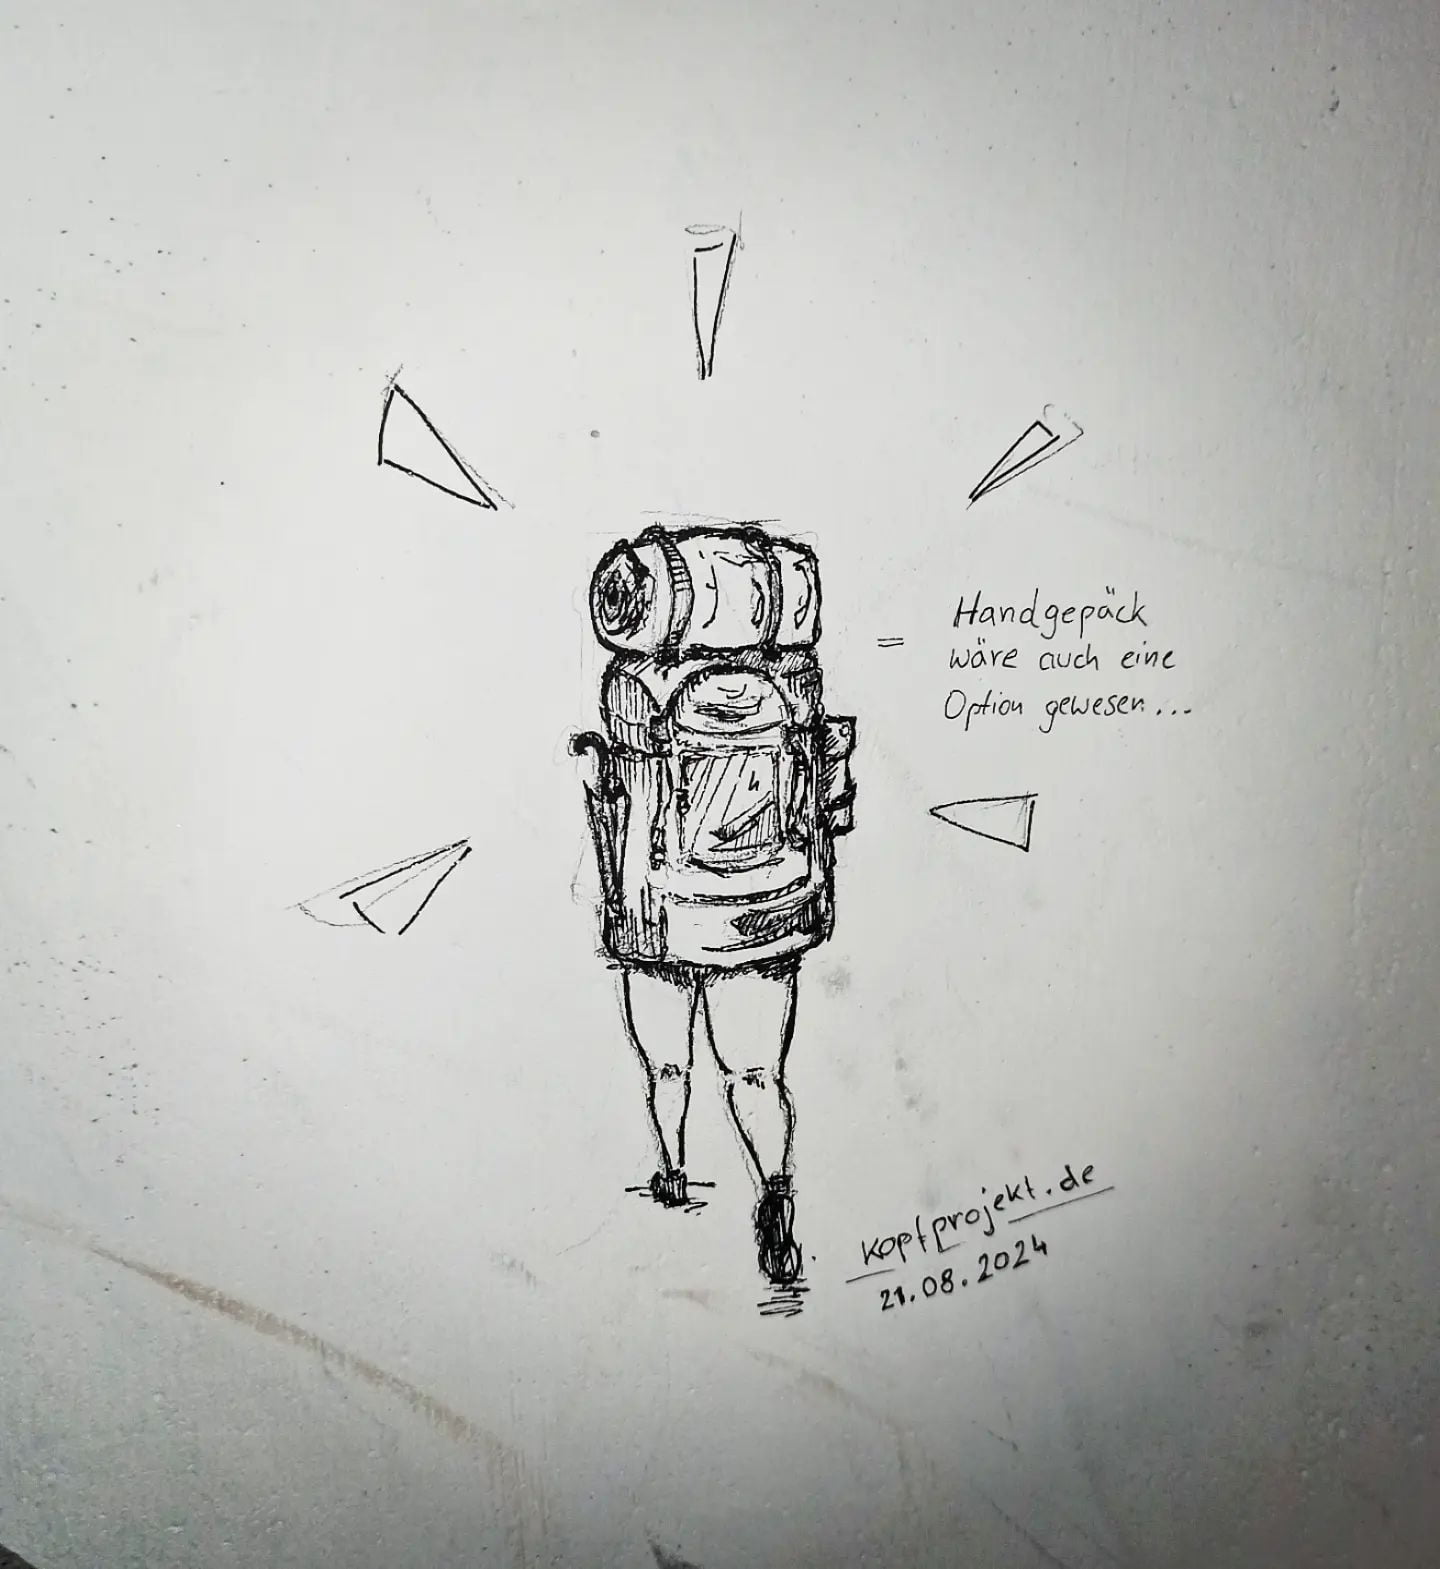 =
Handgepäck
wäre auch eine
Option gewesen...
kopfprojekt.de
21.08.2024